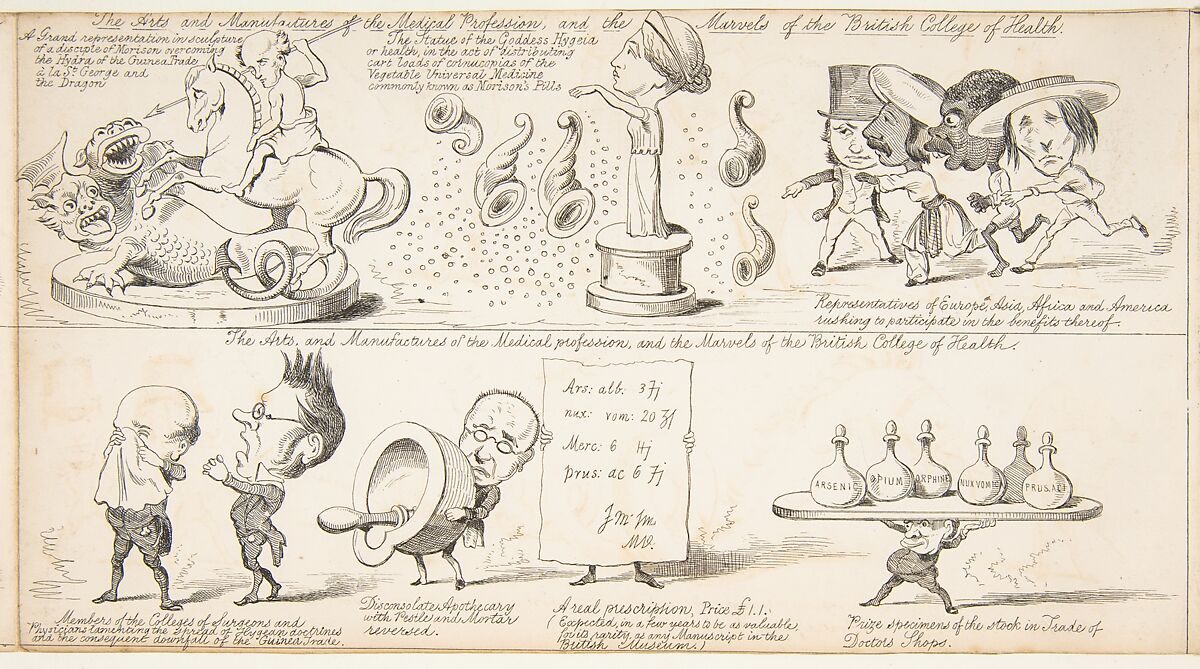 The Arts and Manufactures of the Medical Profession, and the Marvels of the British College of Health.
A Grand representation in sculpture
of a disciple of Morison overcoming
the Hydra of the Guinea Trade
à la St. George and
the Dragon
The Statue of the Goddess Hygeia
or health, in the act of distributing
cart loads of cornucopias of the
Vegetable Universal Medicine
commonly known as Morison's Pills
Representatives of Europe, Asia, Africa and America
rushing to participate in the benefits thereof.
The Arts, and Manufactures of the Medical profession, and the Marvels of the British College of Health.
Ars: alb. 3 ʒj
nux: vom: 20
Merc: 6
prus: ac 6 ʒj
MD.
ARSENIC
OPIUM
ORPHINE
NUX VOMIC
PRUS.ACI
Members of the Colleges of Surgeons and
Physicians lamenting the spread of Hygean doctrines
and the consequent downfall of the Guinea Trade.
Disconsolate Apothecary
with Pestle and Mortar
reversed.
A real prescription, Price £1.1.
(Expected, in a few years to be as valuable
for its rarity, as any Manuscript in the
British Museum.)
Prize specimens of the stock in Trade of
Doctors Shops.